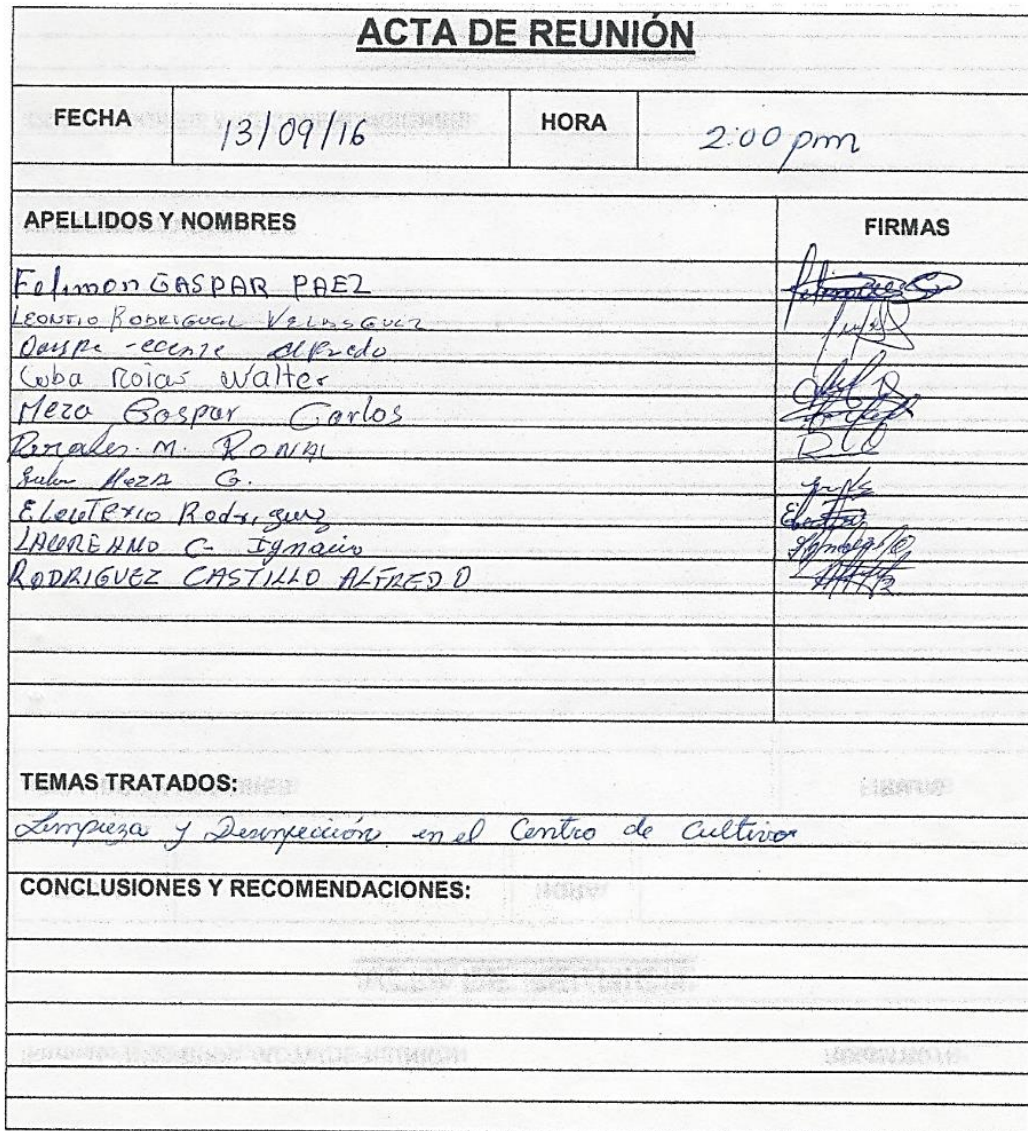 ACTA DE REUNIÓN
FECHA 13/09/16 HORA 2:00 pm
APELLIDOS Y NOMBRES FIRMAS
Felimon GASPAR PAEZ
LEONCIO RODRIGUEZ VELASQUEZ
Alfredo
Coba Rojas Walter
Meza Gaspar Carlos
M. RONAL
Meza G.
Eleuterio Rodriguez
LAUREANO C. Ignacio
RODRIGUEZ CASTILLO ALFREDO
TEMAS TRATADOS:
Limpieza y Desinfección en el Centro de Cultivo
CONCLUSIONES Y RECOMENDACIONES: